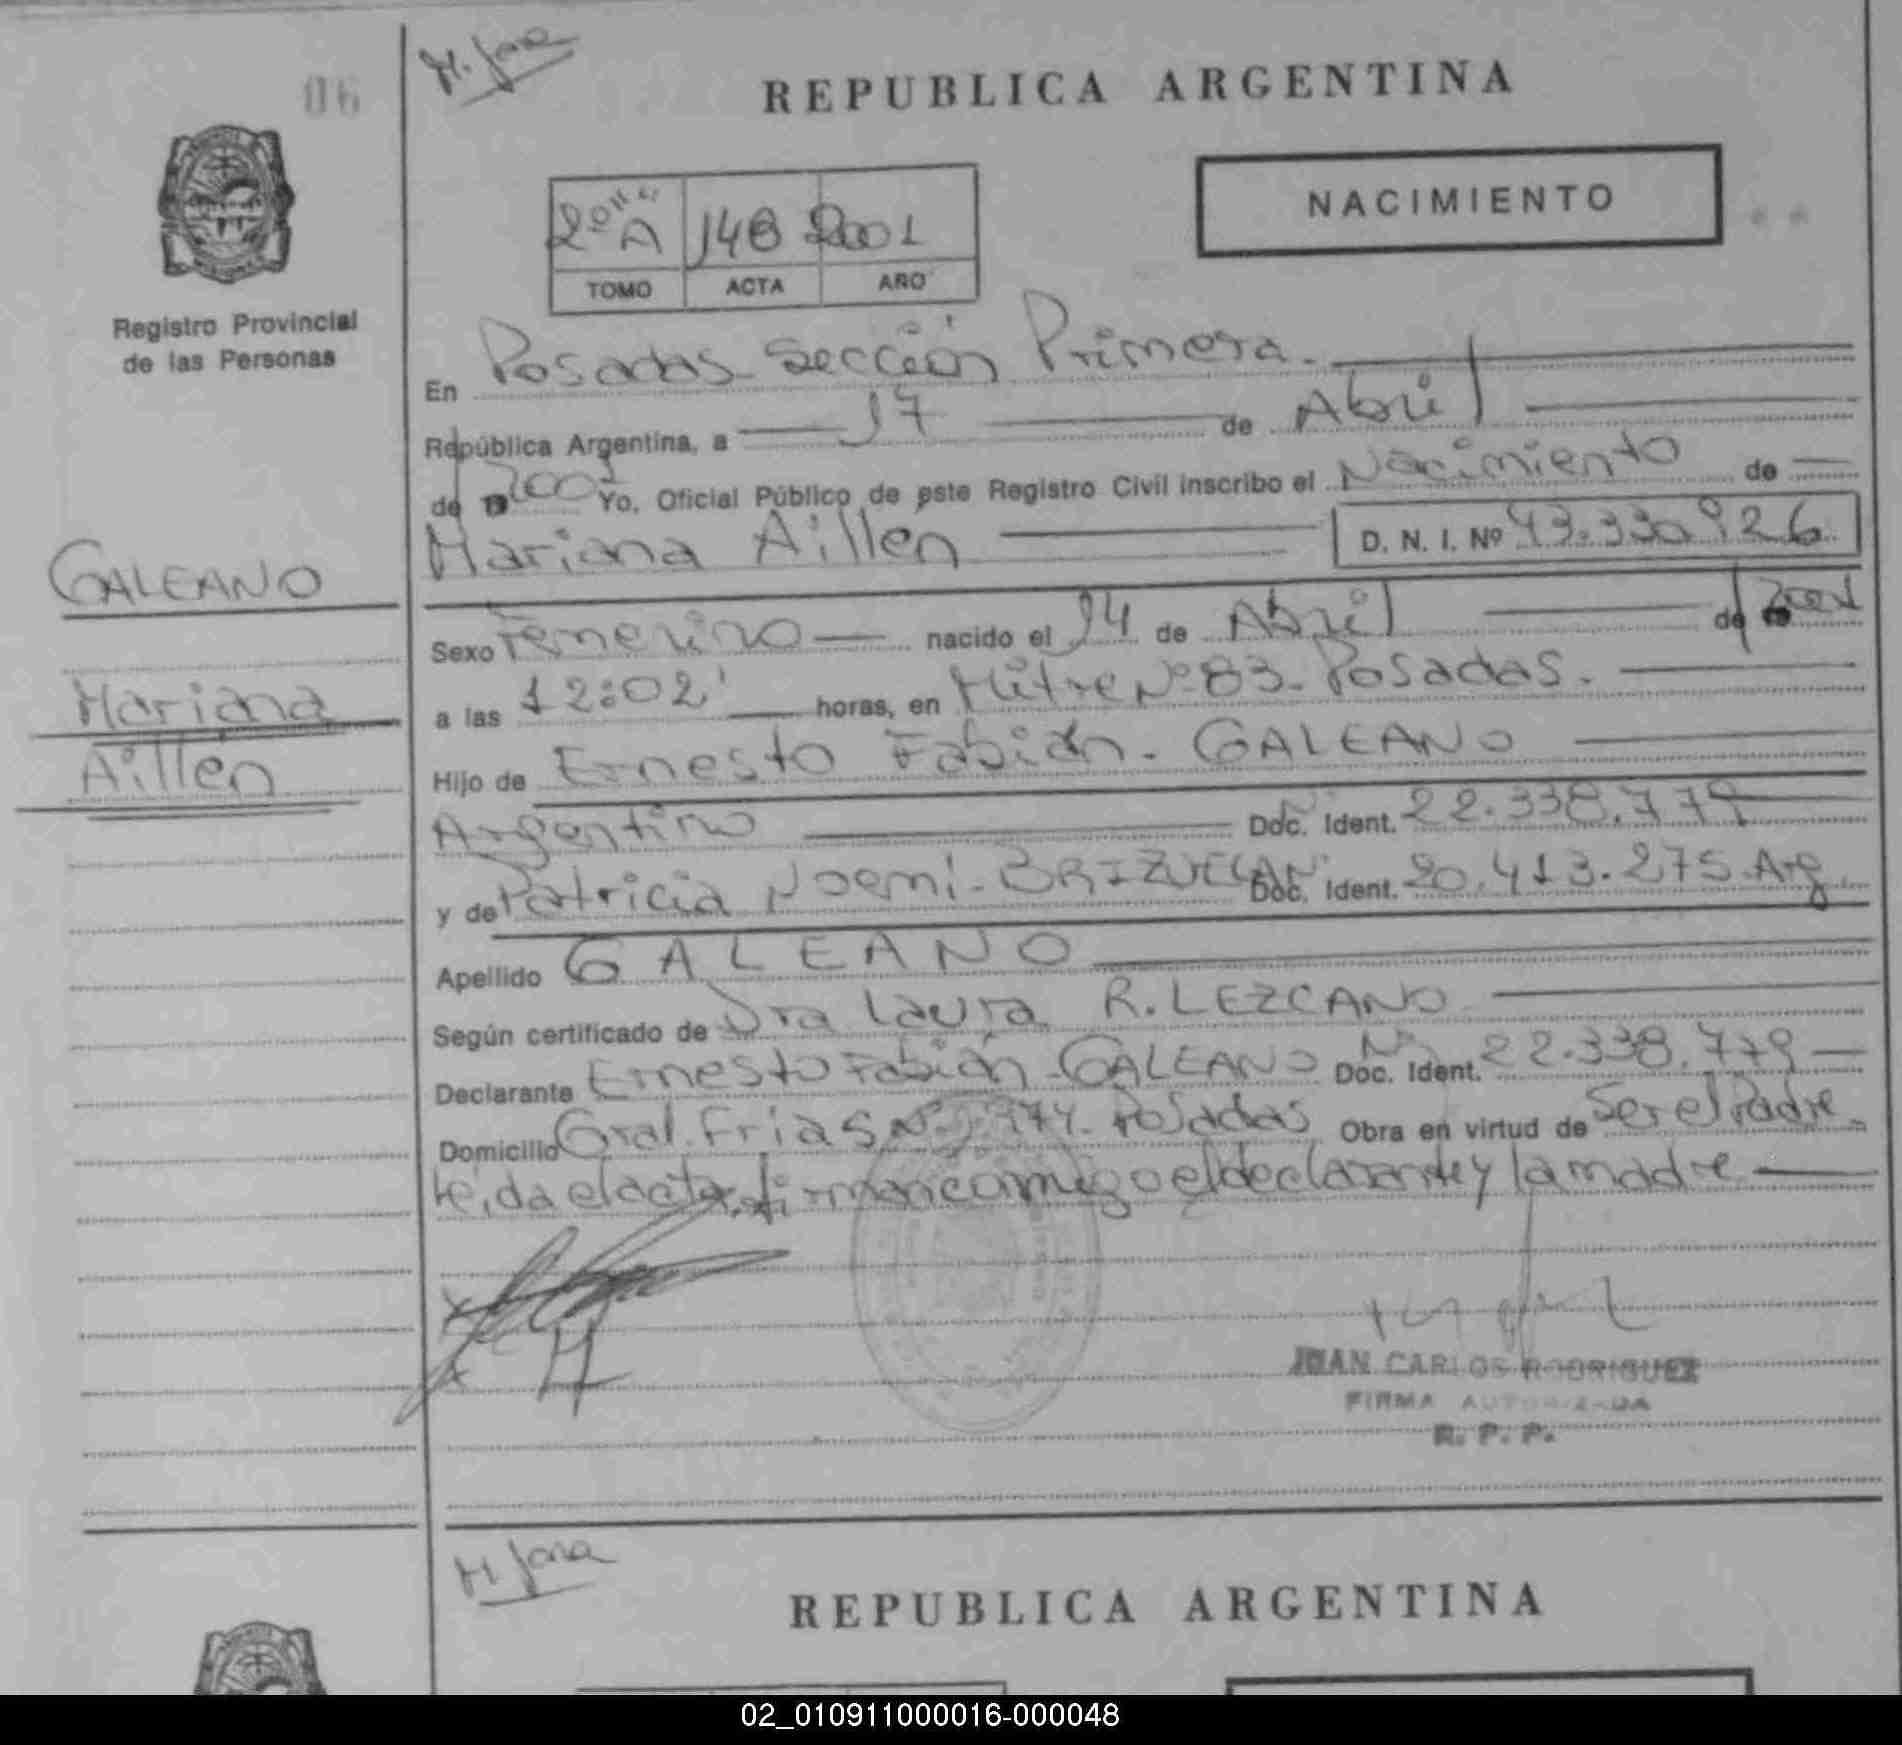 06
M. Jara
REPUBLICA ARGENTINA
NACIMIENTO
2º A 148 2001
TOMO ACTA AÑO
Registro Provincial
de las Personas
En Posadas Sección Primera.
República Argentina, a 17 de Abril
de 2001 Yo, Oficial Público de este Registro Civil inscribo el Nacimiento de
Mariana Aillén D. N. I. Nº 43.330.926
GALEANO
Mariana
Aillén
Sexo Femenino nacido el 14 de Abril de 2001
a las 12:02' horas, en Mitre Nº 83. Posadas.
Hijo de Ernesto Fabián. GALEANO
Argentino Doc. Ident. Nº 22.338.779
y de Patricia Noemí. BRIZUELA Nº Doc. Ident. 20.413.275. Arg.
Apellido GALEANO
Según certificado de Dra Laura R. LEZCANO
Declarante Ernesto Fabián GALEANO Nº Doc. Ident. 22.338.779
Domicilio Gral. Frías Nº Posadas Obra en virtud de Ser el Padre.
leída el acta, firman conmigo el declarante y la madre
JUAN CARLOS RODRIGUEZ
FIRMA AUTORIZADA
R. P. P.
M Jara
REPUBLICA ARGENTINA
02_010911000016-000048